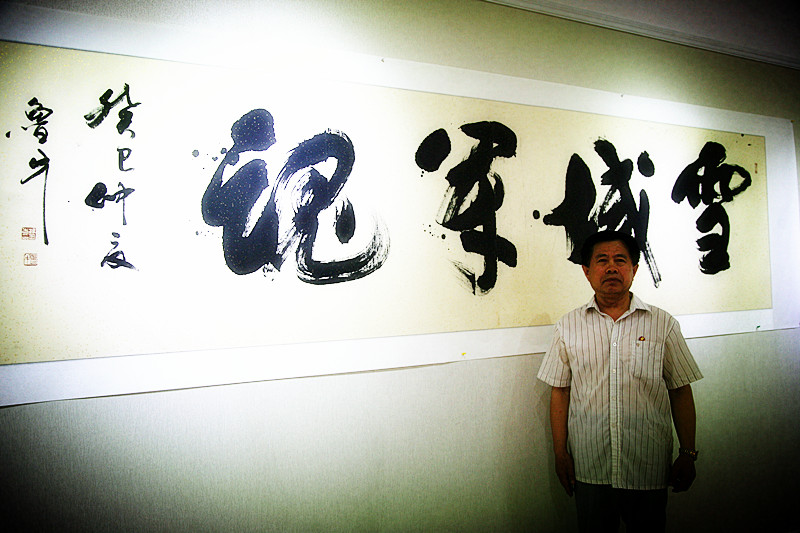 雪域军魂
癸巳仲夏
鲁牛